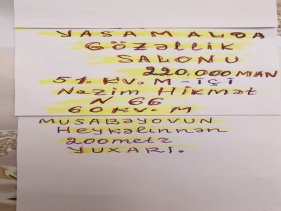 YASAMALDA
GÖZƏLLİK
SALONU
220,000 MAN
51. KV. M - İÇİ
Nazim Hikmət
N 66
60 KV. M
MUSABƏYOVUN
Heykəlinnən
200 metr
YUXARI.